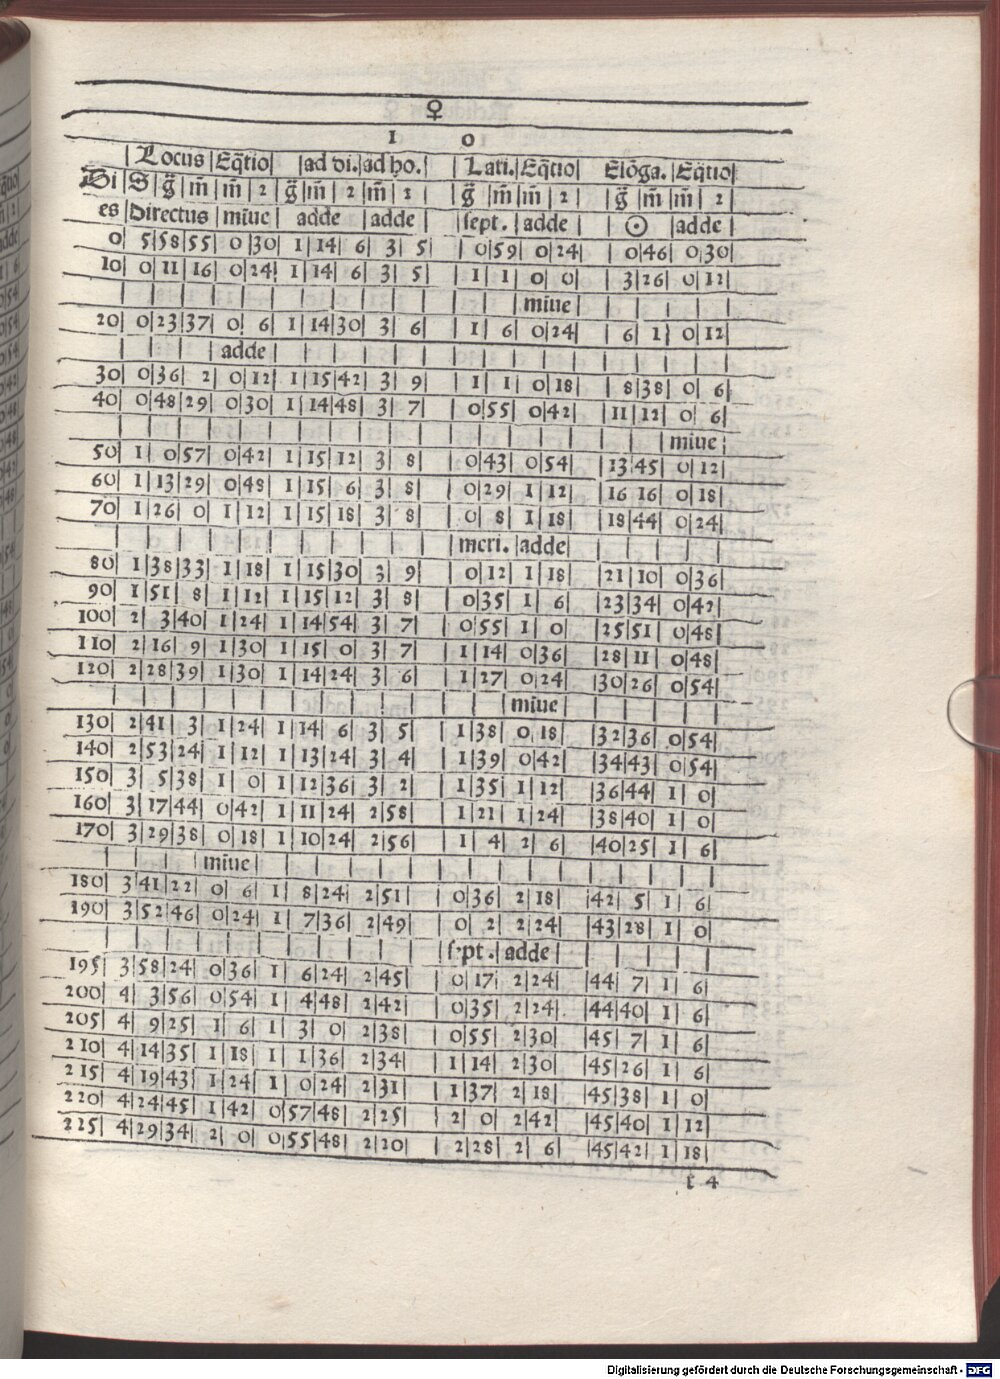 ♀
1 0
|Locus|Eq̃tio| |ad di.|ad ho.| |Lati.|Eq̃tio| Elõga.|Eq̃tio|
Di|S|g̃|m̃|m̃|2|g̃|m̃|2|m̃|2| |g̃|m̃|m̃|2| |g̃|m̃|m̃|2|
es|Directus|miue|adde|adde| |sept.|adde| |☉|adde|
0| 5|58|55| 0|30| 1|14| 6| 3| 5| |0|59| 0|24| |0|46| 0|30|
10| 0|11|16| 0|24| 1|14| 6| 3| 5| |1| 1| 0| 0| |3|26| 0|12|
miue
20| 0|23|37| 0| 6| 1|14|30| 3| 6| |1| 6| 0|24| |6| 1| 0|12|
adde
30| 0|36| 2| 0|12| 1|15|42| 3| 9| |1| 1| 0|18| |8|38| 0| 6|
40| 0|48|29| 0|30| 1|14|48| 3| 7| |0|55| 0|42| |11|12| 0| 6|
miue
50| 1| 0|57| 0|42| 1|15|12| 3| 8| |0|43| 0|54| |13|45| 0|12|
60| 1|13|29| 0|48| 1|15| 6| 3| 8| |0|29| 1|12| |16|16| 0|18|
70| 1|26| 0| 1|12| 1|15|18| 3| 8| |0| 8| 1|18| |18|44| 0|24|
|meri.|adde|
80| 1|38|33| 1|18| 1|15|30| 3| 9| |0|12| 1|18| |21|10| 0|36|
90| 1|51| 8| 1|12| 1|15|12| 3| 8| |0|35| 1| 6| |23|34| 0|42|
100| 2| 3|40| 1|24| 1|14|54| 3| 7| |0|55| 1| 0| |25|51| 0|48|
110| 2|16| 9| 1|30| 1|15| 0| 3| 7| |1|14| 0|36| |28|11| 0|48|
120| 2|28|39| 1|30| 1|14|24| 3| 6| |1|27| 0|24| |30|26| 0|54|
miue
130| 2|41| 3| 1|24| 1|14| 6| 3| 5| |1|38| 0|18| |32|36| 0|54|
140| 2|53|24| 1|12| 1|13|24| 3| 4| |1|39| 0|42| |34|43| 0|54|
150| 3| 5|38| 1| 0| 1|12|36| 3| 2| |1|35| 1|12| |36|44| 1| 0|
160| 3|17|44| 0|42| 1|11|24| 2|58| |1|21| 1|24| |38|40| 1| 0|
170| 3|29|38| 0|18| 1|10|24| 2|56| |1| 4| 2| 6| |40|25| 1| 6|
miue
180| 3|41|22| 0| 6| 1| 8|24| 2|51| |0|36| 2|18| |42| 5| 1| 6|
190| 3|52|46| 0|24| 1| 7|36| 2|49| |0| 2| 2|24| |43|28| 1| 0|
|sept.|adde|
195| 3|58|24| 0|36| 1| 6|24| 2|45| |0|17| 2|24| |44| 7| 1| 6|
200| 4| 3|56| 0|54| 1| 4|48| 2|42| |0|35| 2|24| |44|40| 1| 6|
205| 4| 9|25| 1| 6| 1| 3| 0| 2|38| |0|55| 2|30| |45| 7| 1| 6|
210| 4|14|35| 1|18| 1| 1|36| 2|34| |1|14| 2|30| |45|26| 1| 6|
215| 4|19|43| 1|24| 1| 0|24| 2|31| |1|37| 2|18| |45|38| 1| 0|
220| 4|24|45| 1|42| 0|57|48| 2|25| |2| 0| 2|42| |45|40| 1|12|
225| 4|29|34| 2| 0| 0|55|48| 2|20| |2|28| 2| 6| |45|42| 1|18|
t 4
Digitalisierung gefördert durch die Deutsche Forschungsgemeinschaft - DFG